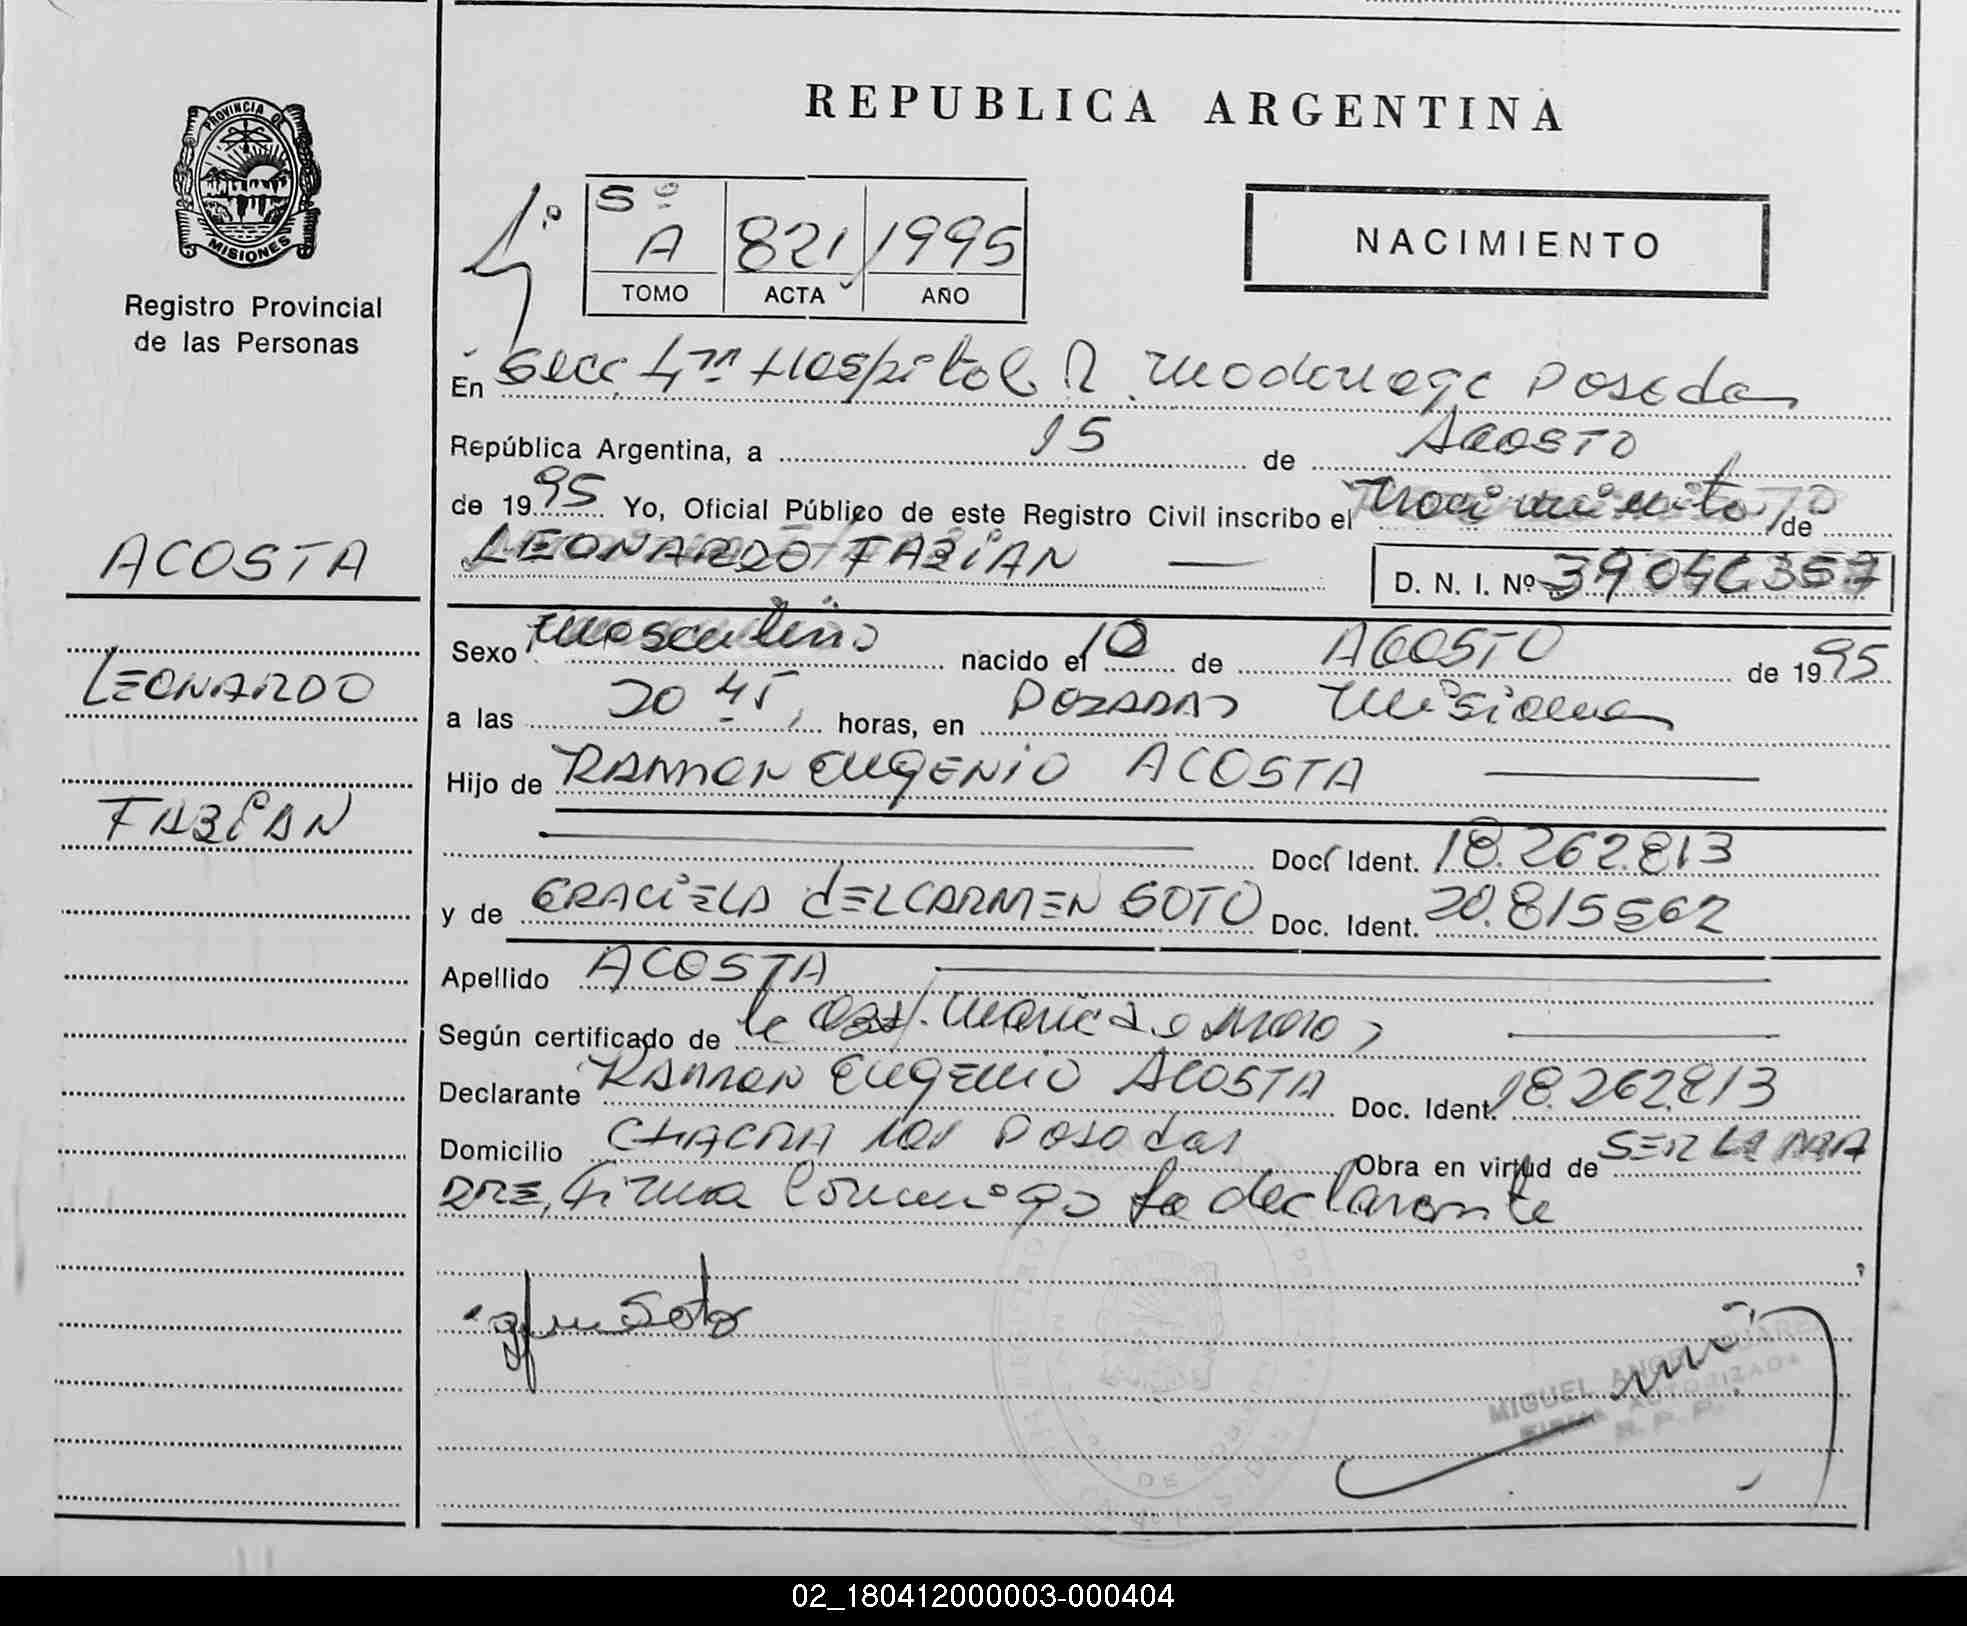 PROVINCIA DE
MISIONES
Registro Provincial
de las Personas
ACOSTA
LEONARDO
FABIAN
REPUBLICA ARGENTINA
1º
5º
A 821 1995
TOMO ACTA AÑO
NACIMIENTO
En Secc 4ta Hospital R. Madariaga Posadas
República Argentina, a 15 de AGOSTO
de 1995 Yo, Oficial Público de este Registro Civil inscribo el Nacimiento de
LEONARDO FABIAN
D. N. I. Nº 39046357
Sexo Masculino nacido el 10 de AGOSTO de 1995
a las 20 45 horas, en POSADAS Misiones
Hijo de RAMON EUGENIO ACOSTA
Doc. Ident. 18.262.813
y de GRACIELA dELCARMEN SOTO Doc. Ident. 20.815562
Apellido ACOSTA
Según certificado de la Obst. Maria
Declarante RAMON EUGENIO ACOSTA Doc. Ident. 18.262.813
Domicilio CHACRA 101 Posadas Obra en virtud de SER LA MA
DRE, Firma Conmigo la declarante
Soto
MIGUEL ANGEL JUAREZ
FIRMA AUTORIZADA
R. P. P.
02_180412000003-000404